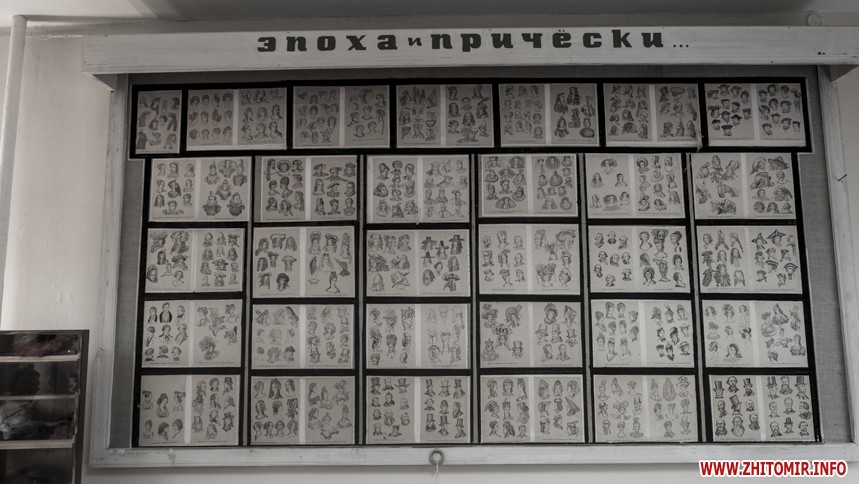 эпоха и причёски...
WWW.ZHITOMIR.INFO